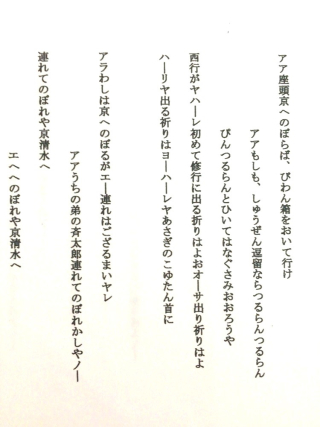 アア座頭京へのぼらば、びわん箱をおいて行け
アアもしも、しゅうぜん逗留ならつるらんつるらん
びんつるらんとひいてはなぐさみおおろうや
西行がヤハーレ初めて修行に出る祈りはよおオーサ出り祈りはよ
ハーリヤ出る祈りはヨーハーレヤあさぎのこゆたん首に
アラわしは京へのぼるがエー連れはござるまいヤレ
アアうちの弟の斉太郎連れてのぼれかしやノー
連れてのぼれや京清水へ
エへへのぼれや京清水へ